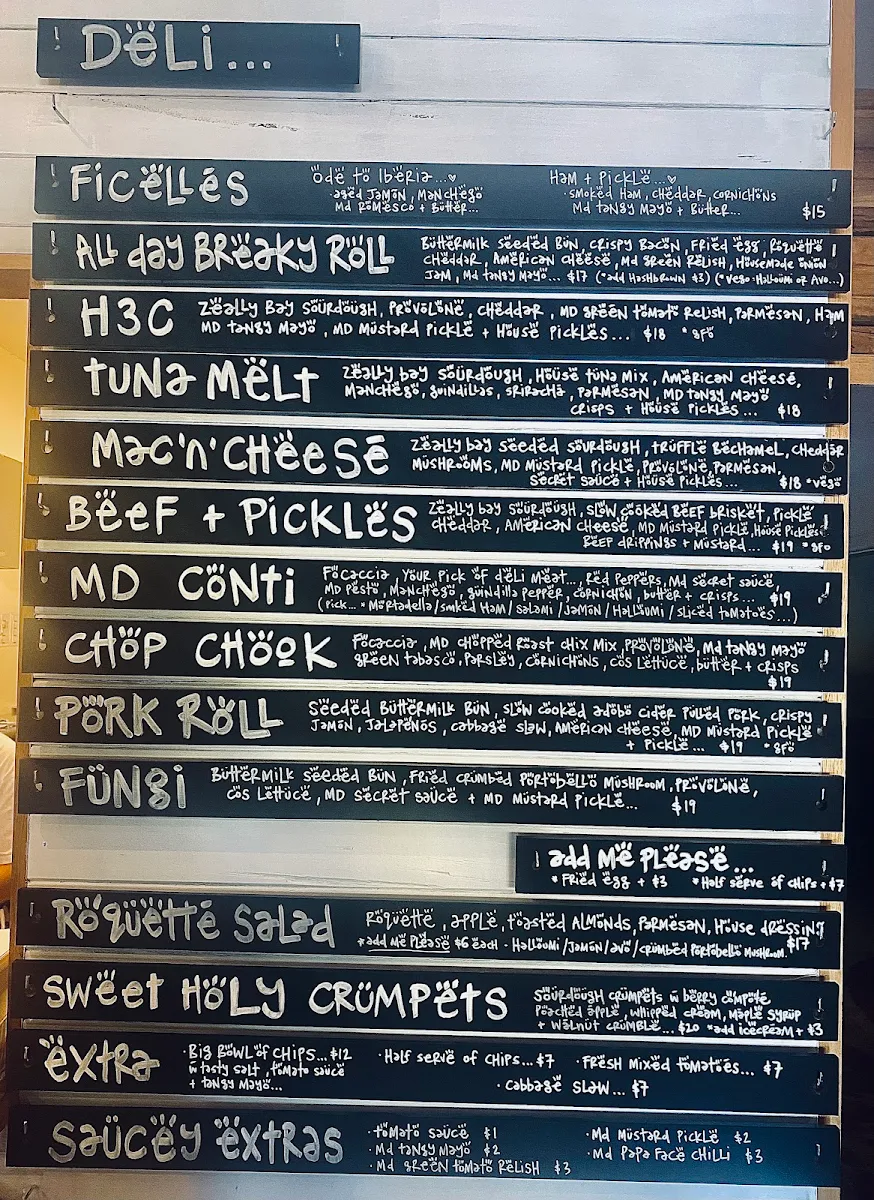 DeLi...
FiCeLLes
Ode to Iberia...♡
·aged Jamon, Manchego
Md Romesco + Butter...
Ham + Pickle...♡
·Smoked Ham, Cheddar, Cornichons
Md tangy Mayo + Butter...
$15
ALL day BReaky RoLL
Buttermilk Seeded Bun, Crispy Bacon, Fried egg, Roquette
Cheddar, American Cheese, Md Green Relish, Housemade onion
Jam, Md tangy Mayo... $17 (*add Hashbrown $3) (*Vego=Halloumi or Avo...)
H3C
Zeally Bay Sourdough, Provolone, Cheddar, MD green tomato Relish, Parmesan, Ham
MD tangy Mayo, MD Mustard Pickle + House Pickles... $18 *gfo
tuna MeLt
Zeally bay Sourdough, House tuna Mix, American Cheese,
Manchego, guindillas, Sriracha, Parmesan, MD tangy Mayo
Crisps + House Pickles... $18
Mac'n'CHeeSe
Zeally bay Seeded Sourdough, truffle Bechamel, Cheddar
Mushrooms, MD Mustard Pickle, Provolone, Parmesan,
Secret Sauce + House Pickles... $18 *vego
BeeF + PiCKLes
Zeally bay Sourdough, Slow Cooked Beef brisket, Pickle
Cheddar, American Cheese, MD Mustard Pickle, House Pickles
Beef drippings + Mustard... $19 *gfo
MD CoNti
Focaccia, Your Pick of deli Meat..., Red Peppers, Md Secret Sauce,
MD Pesto, Manchego, guindilla Pepper, Cornichon, butter + Crisps... $19
(Pick... *Mortadella/Smked Ham/Salami/Jamon/Halloumi/Sliced tomatoes...)
CHoP CHooK
Focaccia, MD Chopped Roast Chix Mix, Provolone, Md tangy Mayo
green tabasco, Parsley, Cornichons, Cos Lettuce, butter + Crisps
$19
PoRK RoLL
Seeded Buttermilk Bun, Slow Cooked adobo Cider Pulled Pork, Crispy
Jamon, Jalapenos, Cabbage Slaw, American Cheese, MD Mustard Pickle
+ Pickle... $19 *gfo
FuNgi
Buttermilk Seeded Bun, Fried Crumbed Portobello Mushroom, Provolone,
Cos Lettuce, MD Secret Sauce + MD Mustard Pickle... $19
add Me PLeaSe...
*Fried egg + $3 *Half Serve of Chips + $7
RoQuette SaLad
Roquette, apple, toasted Almonds, Parmesan, House dressing
$17
*add Me Please $6 each - Halloumi/Jamon/avo/Crumbed Portobello Mushroom.
SWeet HoLy CRuMPets
Sourdough Crumpets w berry Compote
Poached apple, Whipped Cream, Maple Syrup
+ Walnut Crumble... $20 *add icecream + $3
extRa
·Big Bowl of Chips...$12
w tasty Salt, tomato Sauce
+ tangy Mayo...
·Half Serve of Chips...$7
·Fresh Mixed tomatoes... $7
·Cabbage Slaw... $7
SauCey extRas
·tomato Sauce $1
·Md tangy Mayo $2
·Md green tomato Relish $3
·Md Mustard Pickle $2
·Md Papa Face Chilli $3